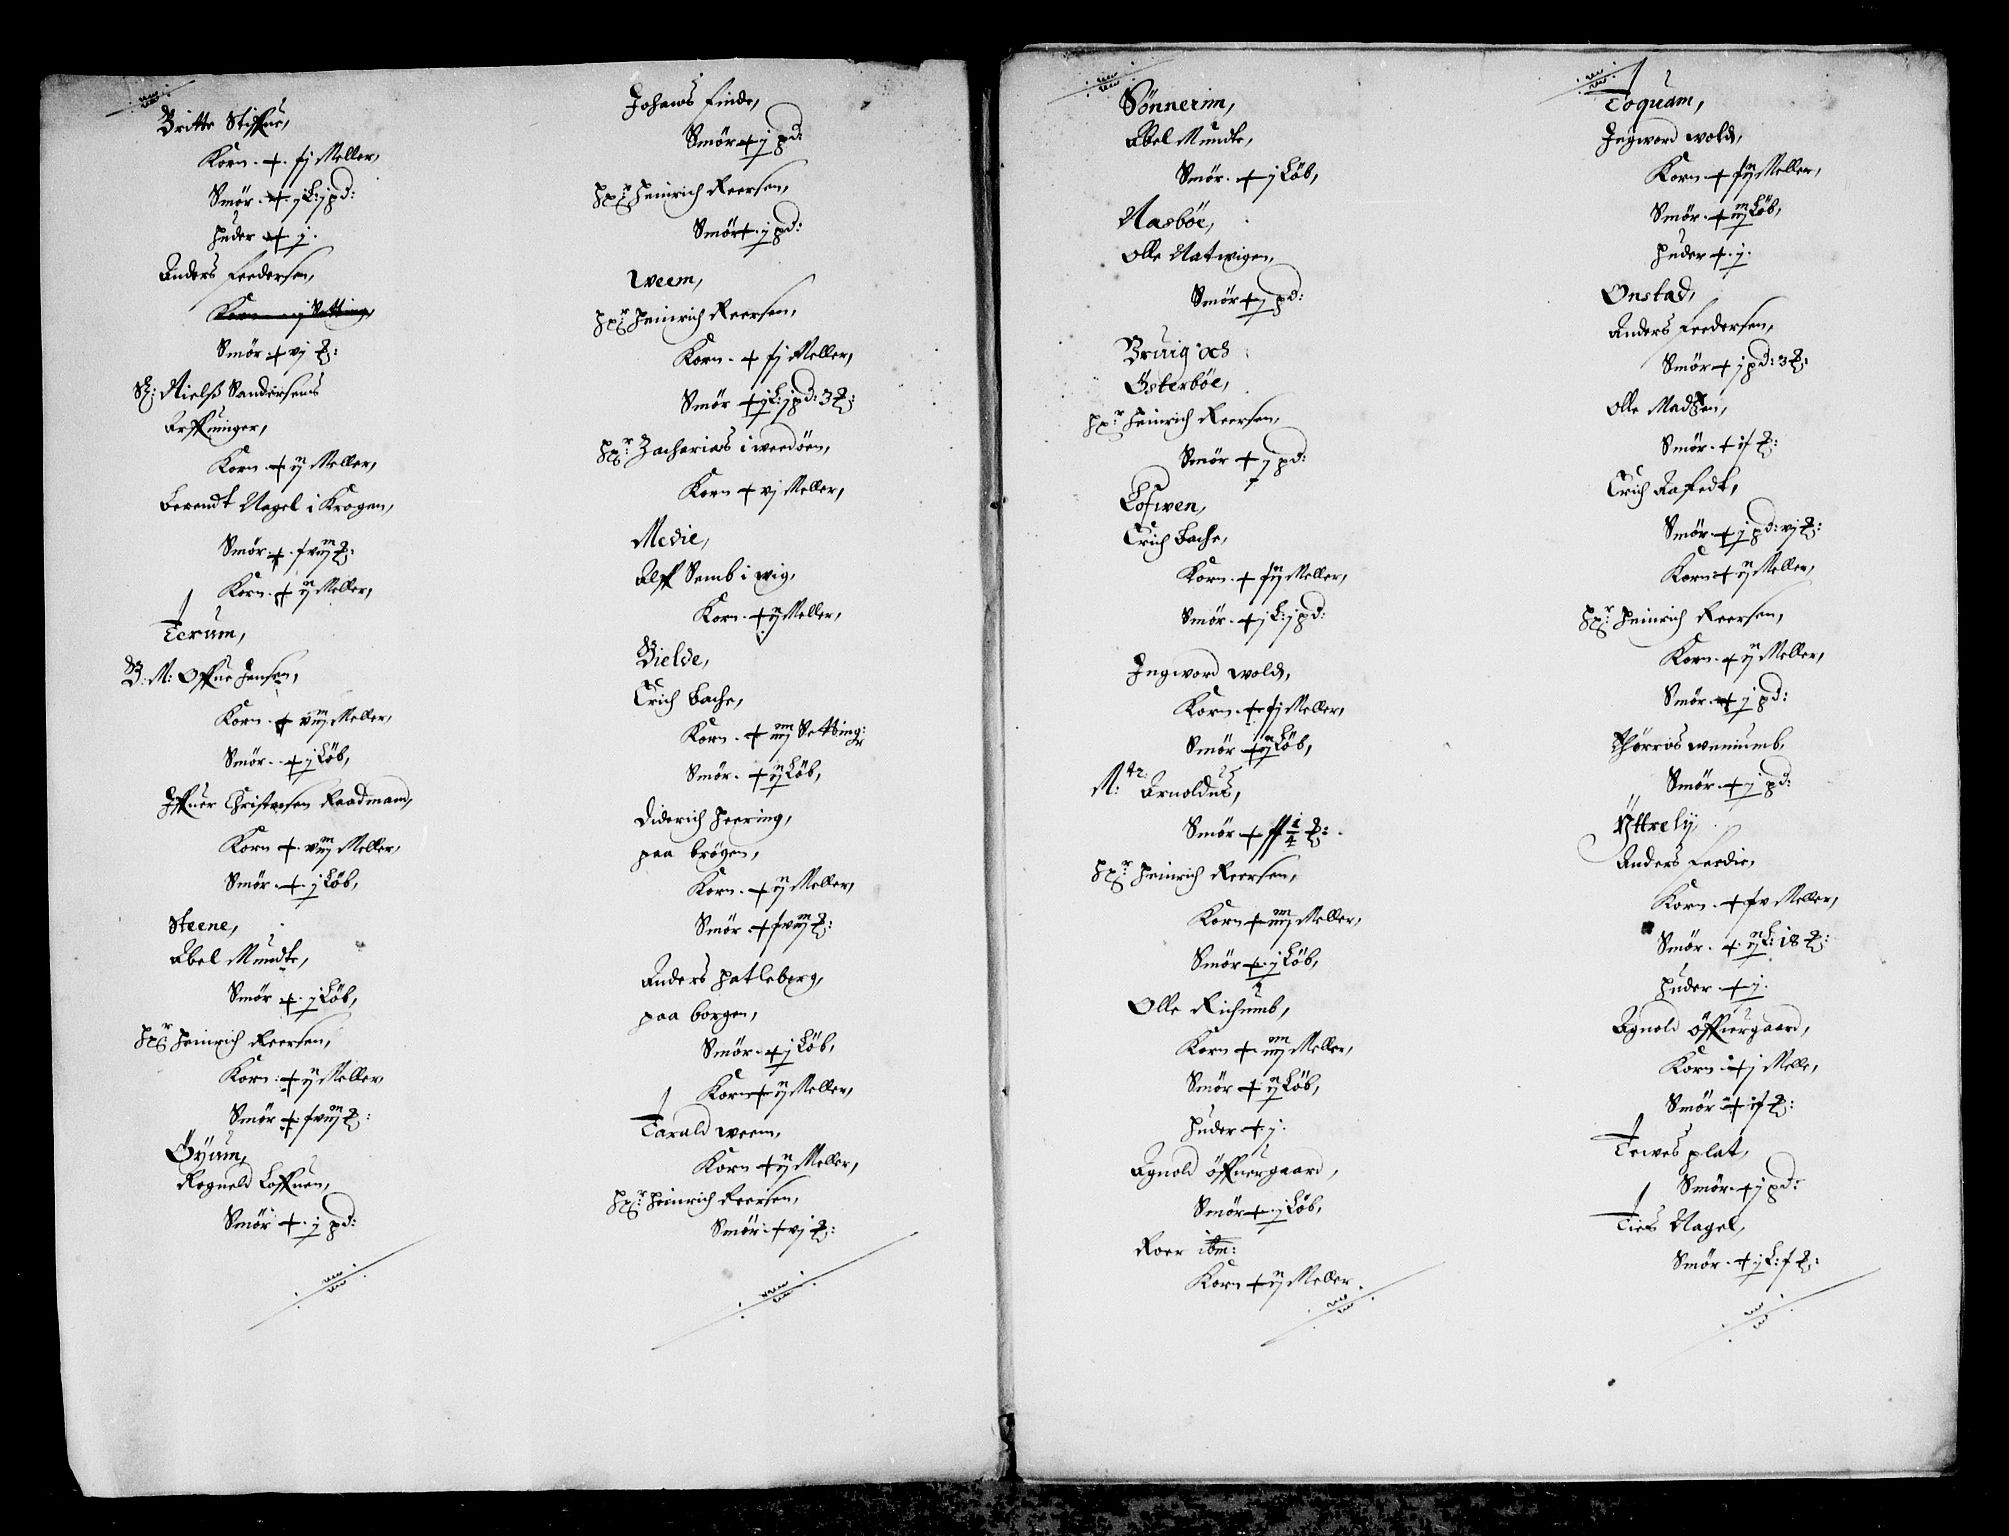 Britte Stiffue,
Korn + fj Meller,
Smör + j L: j pd:
Huder + j.
Anders Feedersen,
Korn
Smör + vj
Sl: Nielss Sandersens
Arffuinger,
Korn + ij Meller,
Berendt Nagel i Krogen,
Smör + fviij
Korn + ij Meller,
Terum,
B: M: Offue Jensen,
Korn + viij Meller,
Smör + j Löb,
Iffuer Christensen Raadmand,
Korn + viij Meller,
Smör + j Löb,
Steene,
Abel Mundte,
Smör + j Löb,
Heinrich Reersen,
Korn + ij Meller,
Smör + fviij
Öyum,
Rogneld Loffuen,
Smör + j pd:
Johans Finde,
Smör + j pd:
Heinrich Reersen,
Smör + j pd:
Weem,
Heinrich Reersen,
Korn + fj Meller,
Smör + j L: j pd: 3
Zacharias i weedöen,
Korn + vj Meller,
Medie,
Alff Semb i wig,
Korn + ij Meller,
Bielde,
Erich Bache,
Korn + iiij Setting:
Smör + ij Löb,
Diderich Heering,
paa bröyen,
Korn + ij Meller,
Smör + fviij
Anders Hatleberg,
paa borgen,
Smör + j Löb,
Korn + ij Meller,
Tarald weem,
Korn + ij Meller,
Heinrich Reersen,
Smör + vj
Sönnerim,
Abel Mundte,
Smör + j Löb,
Nasböe,
Olle Natwigen,
Smör + j pd:
Bruig och
Österböe,
Heinrich Reersen,
Smör + j pd:
Lofwen,
Erich Bache,
Korn + fij Meller,
Smör + j L: j pd:
Ingword wold,
Korn + fj Meller,
Smör + ij Löb,
M: Arnoldus,
Smör + ff 1/4
Heinrich Reersen,
Korn + iiij Meller,
Smör + j Löb,
Olle Richumb,
Korn + iiij Meller,
Smör + ij Löb,
Huder + j.
Agnold Öffuergaard,
Smör + j Löb,
Roer ibm:
Korn + ij Meller.
Loquam,
Ingword wold,
Korn + fij Meller,
Smör + iij Löb,
Huder + j.
Onstad,
Anders Feedersen,
Smör + j pd: 3
Olle Madtzen,
Smör + if
Erich Aafedt,
Smör + j pd: vj
Korn + ij Meller,
Heinrich Reersen,
Korn + ij Meller,
Smör + j pd:
Thörris weniumb,
Smör + j pd:
Yttrelij,
Anders Feedie,
Korn + fv Meller,
Smör + ij L: 18
Huder + j.
Agnold Öffuergaard,
Korn + j Melle,
Smör + if
Tewes plat,
Smör + j pd:
Ties Nagel,
Smör + j L: f